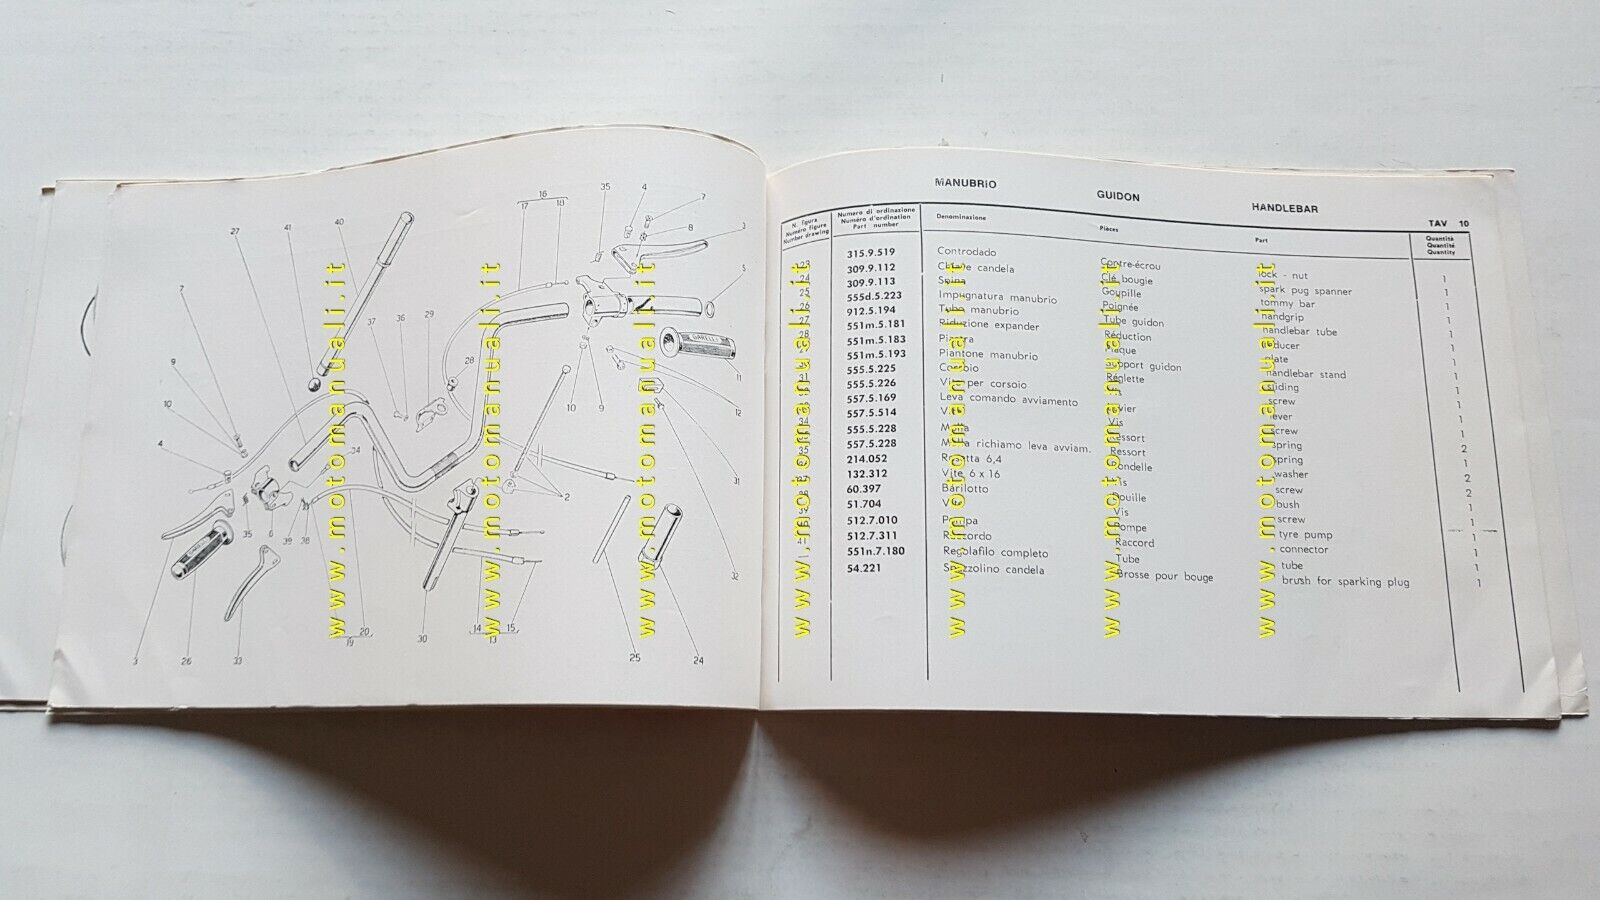 MANUBRIO GUIDON HANDLEBAR
TAV 10
N. figura Numero di ordinazione Denominazione Pièces Part Quantità
Numéro figure Numéro d'ordination Quantité
Number drawing Part number Quantity
23 315.9.519 Controdado Contre-écrou lock - nut 1
24 309.9.112 Chiave candela Clé bougie spark pug spanner 1
25 309.9.113 Spina Goupille tommy bar 1
26 555d.5.223 Impugnatura manubrio Poignée handgrip 1
27 912.5.194 Tubo manubrio Tube guidon handlebar tube 1
28 551m.5.181 Riduzione expander Réduction reducer 1
551m.5.183 Piastra Plaque plate 1
551m.5.193 Piantone manubrio Support guidon handlebar stand 1
31 555.5.225 Corsoio Réglette sliding 1
555.5.226 Vite per corsoio Vis screw 1
557.5.169 Leva comando avviamento Levier lever 1
34 557.5.514 Vite Vis screw 1
35 555.5.228 Molla Ressort spring 2
557.5.228 Molla richiamo leva avviam. Ressort spring 1
214.052 Rosetta 6,4 Rondelle washer 2
132.312 Vite 6 x 16 Vis screw 2
38 60.397 Barilotto Douille bush 1
39 51.704 Vite Vis screw 1
40 512.7.010 Pompa Pompe tyre pump 1
41 512.7.311 Raccordo Raccord connector 1
551n.7.180 Regolafilo completo Tube tube 1
54.221 Spazzolino candela Brosse pour bouge brush for sparking plug 1
16
17 18
35 4 7
8 3
5
40
41
27
7
9
10
4
37 36 29
28
GARELLI
11
12
10 9
34
2
31
32
35 6 39 38
GARELLI
3 26 33
19 20
30
14 15
13
25 24
www.motomanuali.it
www.motomanuali.it
www.motomanuali.it
www.motomanuali.it
www.motomanuali.it
www.motomanuali.it
www.motomanuali.it